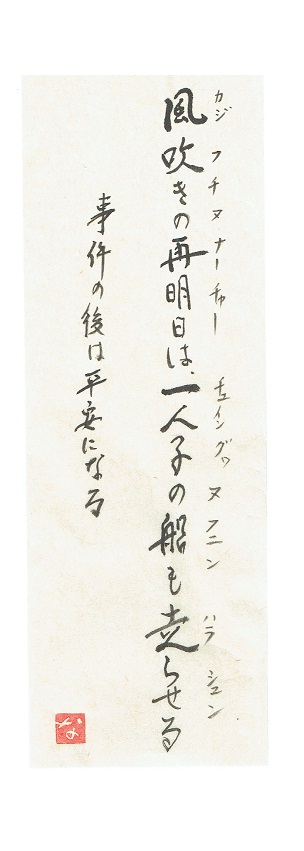 カジ フチヌ ナーチャー チュイングヮ ヌ フニン ハラ シュン
風吹きの再明日は、一人子の船も走らせる
事件の後は平安になる
な